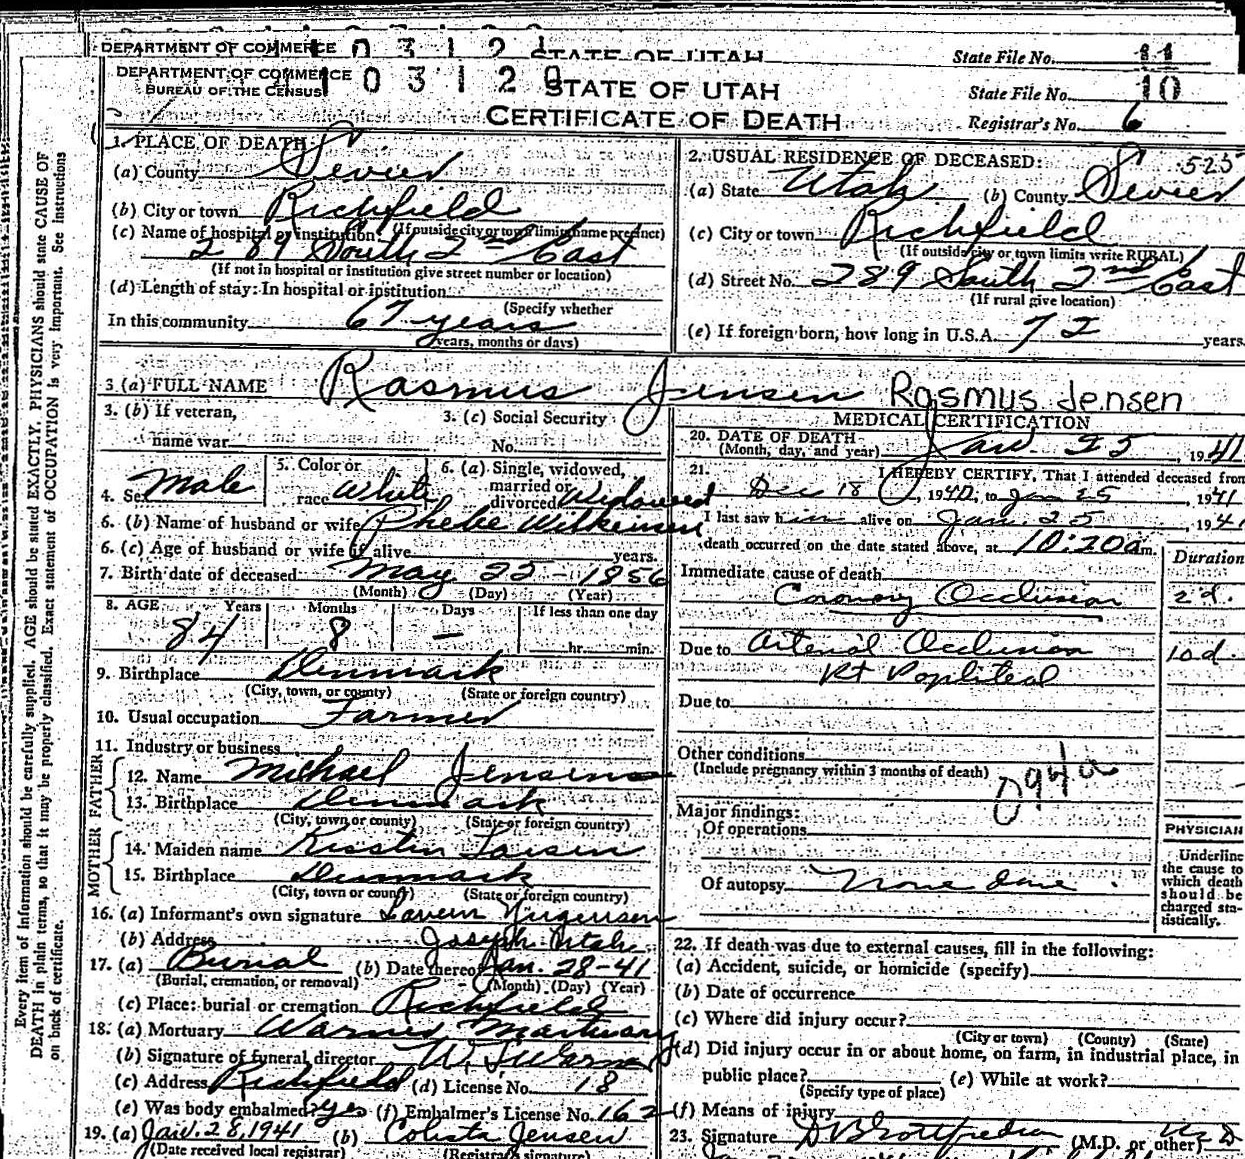 DEPARTMENT OF COMMERCE 10312 STATE OF UTAH State File No. 11
DEPARTMENT OF COMMERCE
BUREAU OF THE CENSUS
103129 STATE OF UTAH State File No. 10
CERTIFICATE OF DEATH Registrar's No. 6
1. PLACE OF DEATH
(a) County Sevier
(b) City or town Richfield
(If outside city or town limits name precinct)
(c) Name of hospital or institution:
289 South 2nd East
(If not in hospital or institution give street number or location)
(d) Length of stay: In hospital or institution
(Specify whether
In this community 67 years
years, months or days)
2. USUAL RESIDENCE OF DECEASED: 525
(a) State Utah (b) County Sevier
(c) City or town Richfield
(If outside city or town limits write RURAL)
(d) Street No. 289 South 2nd East
(If rural give location)
(e) If foreign born, how long in U.S.A. 72 years.
3 (a) FULL NAME Rasmus Jensen Rasmus Jensen
3. (b) If veteran,
name war
3. (c) Social Security
No.
4. Sex Male
5. Color or
race White
6. (a) Single, widowed,
married or
divorced Widowed
6. (b) Name of husband or wife Phebe
6. (c) Age of husband or wife if alive years.
7. Birth date of deceased May 22 - 1856
(Month) (Day) (Year)
8. AGE Years Months Days If less than one day
84 8 — hr. min.
9. Birthplace Denmark
(City, town, or county) (State or foreign country)
10. Usual occupation Farmer
11. Industry or business
FATHER
12. Name Michael Jensen
13. Birthplace Denmark
(City, town or county) (State or foreign country)
MOTHER
14. Maiden name Larsen
15. Birthplace Denmark
(City, town or county) (State or foreign country)
16. (a) Informant's own signature
(b) Address Joseph Utah
17. (a) Burial (b) Date thereof Jan. 28-41
(Burial, cremation, or removal) (Month) (Day) (Year)
(c) Place: burial or cremation Richfield
18. (a) Mortuary Mortuary
(b) Signature of funeral director
(c) Address Richfield (d) License No. 18
(e) Was body embalmed? yes (f) Embalmer's License No. 162
19. (a) Jan. 28, 1941 (b) Jensen
(Date received local registrar) (Registrar's signature)
MEDICAL CERTIFICATION
20. DATE OF DEATH
(Month, day, and year) Jan. 25, 1941
21. I HEREBY CERTIFY, That I attended deceased from
Dec 18, 1940, to Jan 25, 1941
I last saw him alive on Jan. 25, 1941
death occurred on the date stated above, at 10:20 a m.
Duration
Immediate cause of death
Coronary Occlusion 2 d.
Due to Arterial Occlusion 10 d.
Rt Popliteal
Due to
Other conditions
(Include pregnancy within 3 months of death)
094a
Major findings:
Of operations
Of autopsy None done
PHYSICIAN
Underline
the cause to
which death
should be
charged sta-
tistically.
22. If death was due to external causes, fill in the following:
(a) Accident, suicide, or homicide (specify)
(b) Date of occurrence
(c) Where did injury occur?
(City or town) (County) (State)
(d) Did injury occur in or about home, on farm, in industrial place, in
public place? (e) While at work?
(Specify type of place)
(f) Means of injury
23. Signature (M.D. or other)
Every item of information should be carefully supplied. AGE should be stated EXACTLY. PHYSICIANS should state CAUSE OF
DEATH in plain terms, so that it may be properly classified. Exact statement of OCCUPATION is very important. See Instructions
on back of certificate.